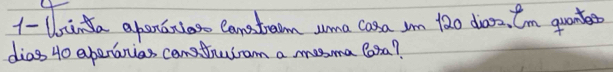 1- Trinta operários constroem uma casa em 120 dias. Em quantos
dias 40 operários construiram a mesma casa?